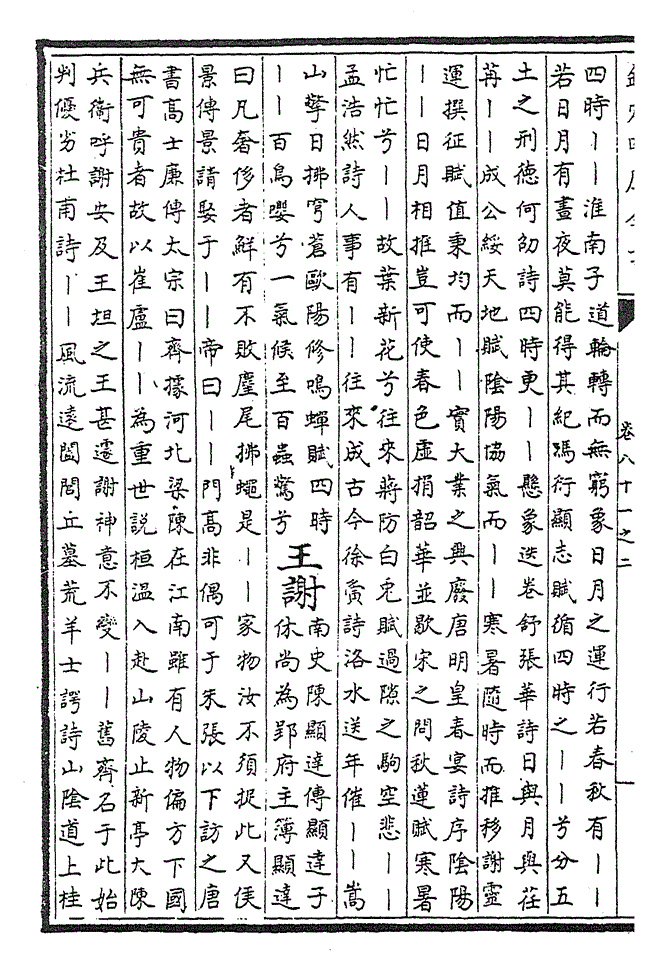 卷八十一之二
四時｜｜淮南子道輪轉而無窮象日月之運行若春秋有｜｜
若日月有晝夜莫能得其紀馮衍顯志賦循四時之｜｜兮分五
土之刑德何劭詩四時更｜｜懸象迭卷舒張華詩日與月與荏
苒｜｜成公綏天地賦陰陽協氣而｜｜寒暑隨時而推移謝靈
運撰征賦值秉均而｜｜實大業之興廢唐明皇春宴詩序陰陽
｜｜日月相推豈可使春色虛捐韶華並歇宋之問秋蓮賦寒暑
忙忙兮｜｜故葉新花兮往來蔣防白兔賦過隙之駒空悲｜｜
孟浩然詩人事有｜｜往來成古今徐夤詩洛水送年催｜｜嵩
山擎日拂穹蒼歐陽修鳴蟬賦四時
｜｜百鳥嚶兮一氣候至百蟲驚兮
王謝
南史陳顯達傳顯達子
休尚為郢府主簿顯達
曰凡奢侈者鮮有不敗麈尾拂蠅是｜｜家物汝不須捉此又侯
景傳景請娶于｜｜帝曰｜｜門高非偶可于朱張以下訪之唐
書高士廉傳太宗曰齊據河北梁陳在江南雖有人物偏方下國
無可貴者故以崔盧｜｜為重世說桓溫入赴山陵止新亭大陳
兵衛呼謝安及王坦之王甚遽謝神意不變｜｜舊齊名于此始
判優劣杜甫詩｜｜風流遠闔閭丘墓荒羊士諤詩山陰道上桂